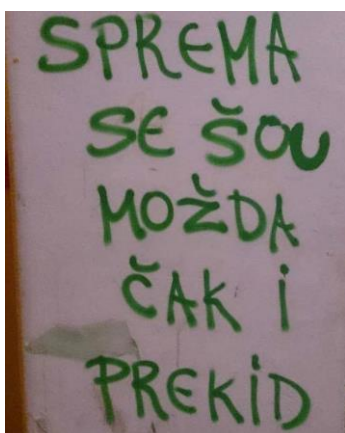 SPREMA
SE ŠOU
MOŽDA
ČAK i
PREKiD